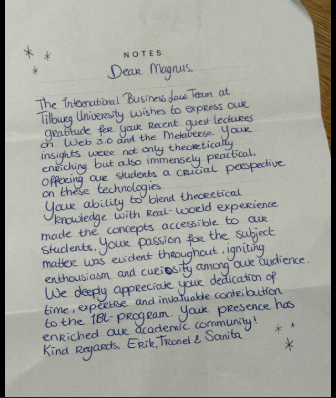 NOTES
Dear Magnus,
The International Business Law Team at
Tilburg University wishes to express our
gratitude for your recent guest lectures
on Web 3.0 and the Metaverse. Your
insights were not only theoretically
enriching but also immensely practical,
offering our students a crucial perspective
on these technologies.
Your ability to blend theoretical
knowledge with real-world experience
made the concepts accessible to our
students. Your passion for the subject
matter was evident throughout, igniting
enthousiasm and curiosity among our audience.
We deeply appreciate your dedication of
time, expertise and invaluable contribution
to the IBL-program. Your presence has
enriched our academic community!
Kind Regards, Erik, & Sanita